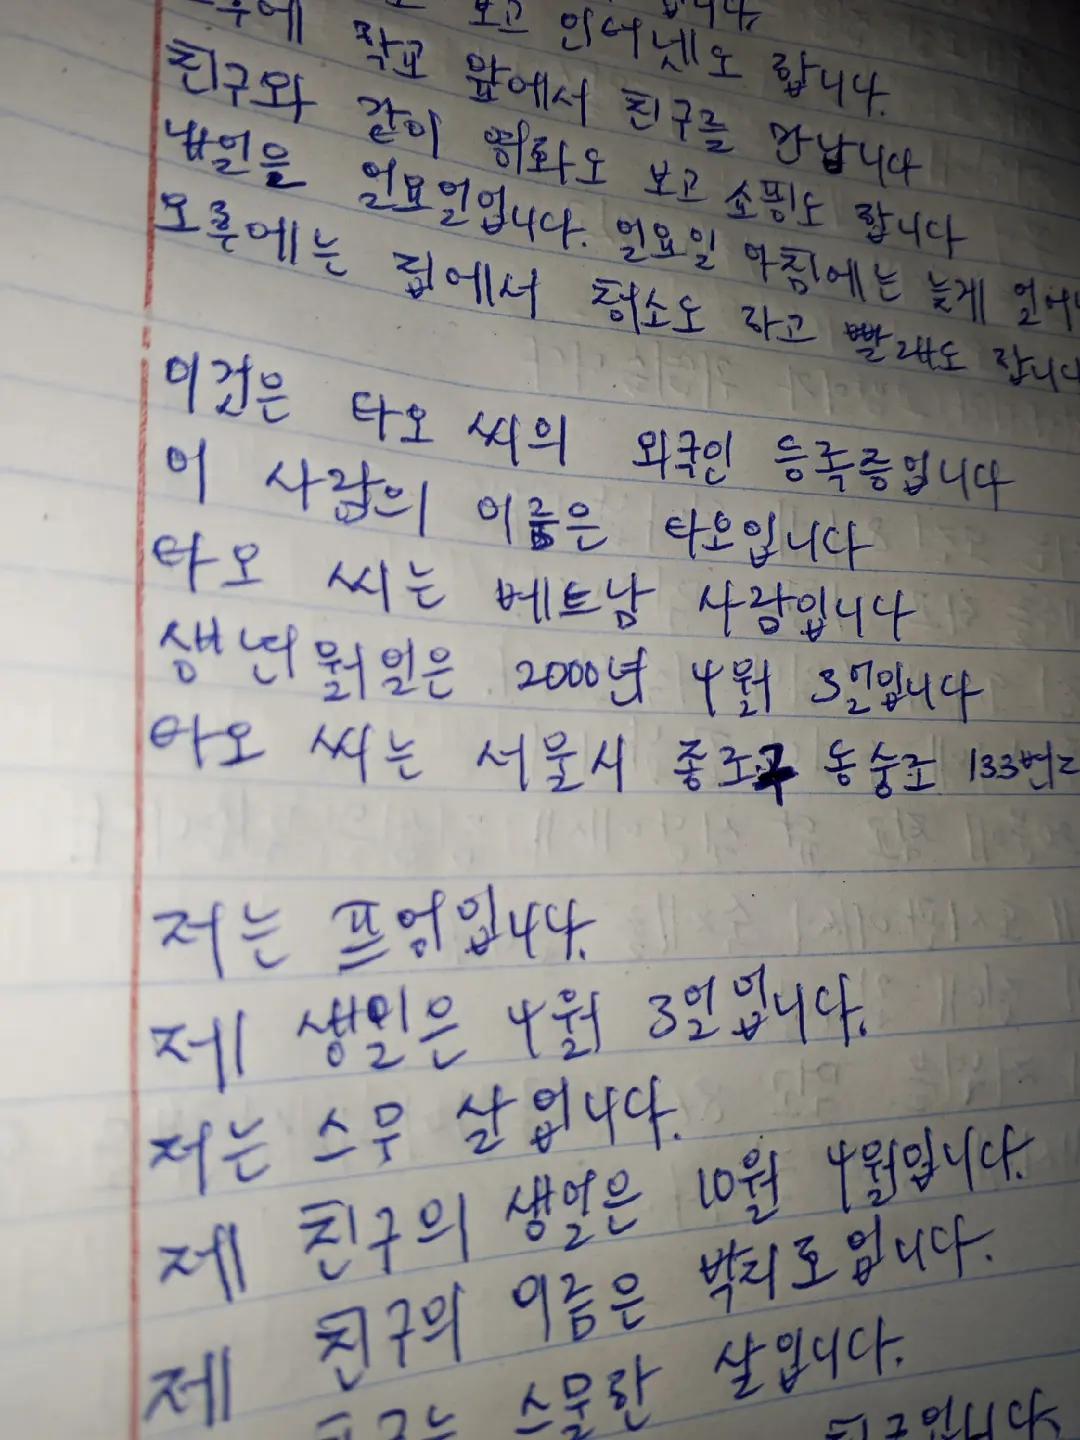 보고 인터넷도 합니다.
학교 앞에서 친구를 만납니다
친구와 같이 영화도 보고 쇼핑도 합니다
내일은 일요일입니다. 일요일 아침에는 늦게
오후에는 집에서 청소도 하고 빨래도 합니다
이건은 타오 씨의 외국인 등록증입니다
이 사람의 이름은 타오입니다
타오 씨는 베트남 사람입니다
생년월일은 2000년 4월 3일입니다
타오 씨는 서울시 종로구 동숭로 133번
저는 프엉입니다.
제 생일은 4월 3일입니다.
저는 스무 살입니다.
제 친구의 생일은 10월 4월입니다.
친구의 이름은 박지호입니다.
제 스물한 살입니다.